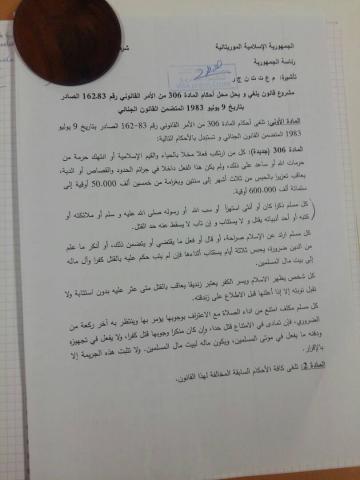 الجمهورية الإسلامية الموريتانية
رئاسة الجمهورية
تأشيرة: م ع ت ت ن ج ر
مشروع قانون يلغي و يحل محل أحكام المادة 306 من الأمر القانوني رقم 162.83 الصادر
بتاريخ 9 يوليو 1983 المتضمن القانون الجنائي
المادة الأولى: تلغى أحكام المادة 306 من الأمر القانوني رقم 83-162 الصادر بتاريخ 9 يوليو
1983 المتضمن القانون الجنائي و تستبدل بالأحكام التالية:
المادة 306 (جديدة): كل من ارتكب فعلا مخلا بالحياء والقيم الإسلامية أو انتهك حرمة من
حرمات الله أو ساعد على ذلك، ولم يكن هذا الفعل داخلا في جرائم الحدود والقصاص أو الدية،
يعاقب تعزيرا بالحبس من ثلاث أشهر إلى سنتين وبغرامة من خمسين ألف 50.000 أوقية إلى
ستمائة ألف 600.000 أوقية.
كل مسلم ذكرا كان أو أنثى استهزأ أو سب الله أو رسوله صلى الله عليه و سلم أو ملائكته أو
كتبه أو أحد أنبيائه يقتل و لا يستتاب و إن تاب لا يسقط عنه حد القتل.
كل مسلم ارتد عن الإسلام صراحة، أو قال أو فعل ما يقتضي أو يتضمن ذلك، أو أنكر ما علم
من الدين ضرورة، يحبس ثلاثة أيام يستتاب أثناءها فإن لم يتب حكم عليه بالقتل كفرا وآل ماله
إلى بيت مال المسلمين.
كل شخص يظهر الاسلام ويسر الكفر يعتبر زنديقا يعاقب بالقتل متى عثر عليه بدون استتابة ولا
تقبل توبته إلا إذا أعلنها قبل الاطلاع على زندقته.
كل مسلم مكلف امتنع من أداء الصلاة مع الاعتراف بوجوبها يؤمر بها وينتظر به آخر ركعة من
الضروري، فإن تمادى في الامتناع قتل حدا، وإن كان منكرا وجوبها قتل كفرا، ولا يفعل في تجهيزه
ودفنه ما يفعل في موتى المسلمين، ويكون ماله لبيت مال المسلمين. ولا تثبت هذه الجريمة إلا
بالإقرار.
المادة 2: تلغى كافة الأحكام السابقة المخالفة لهذا القانون.